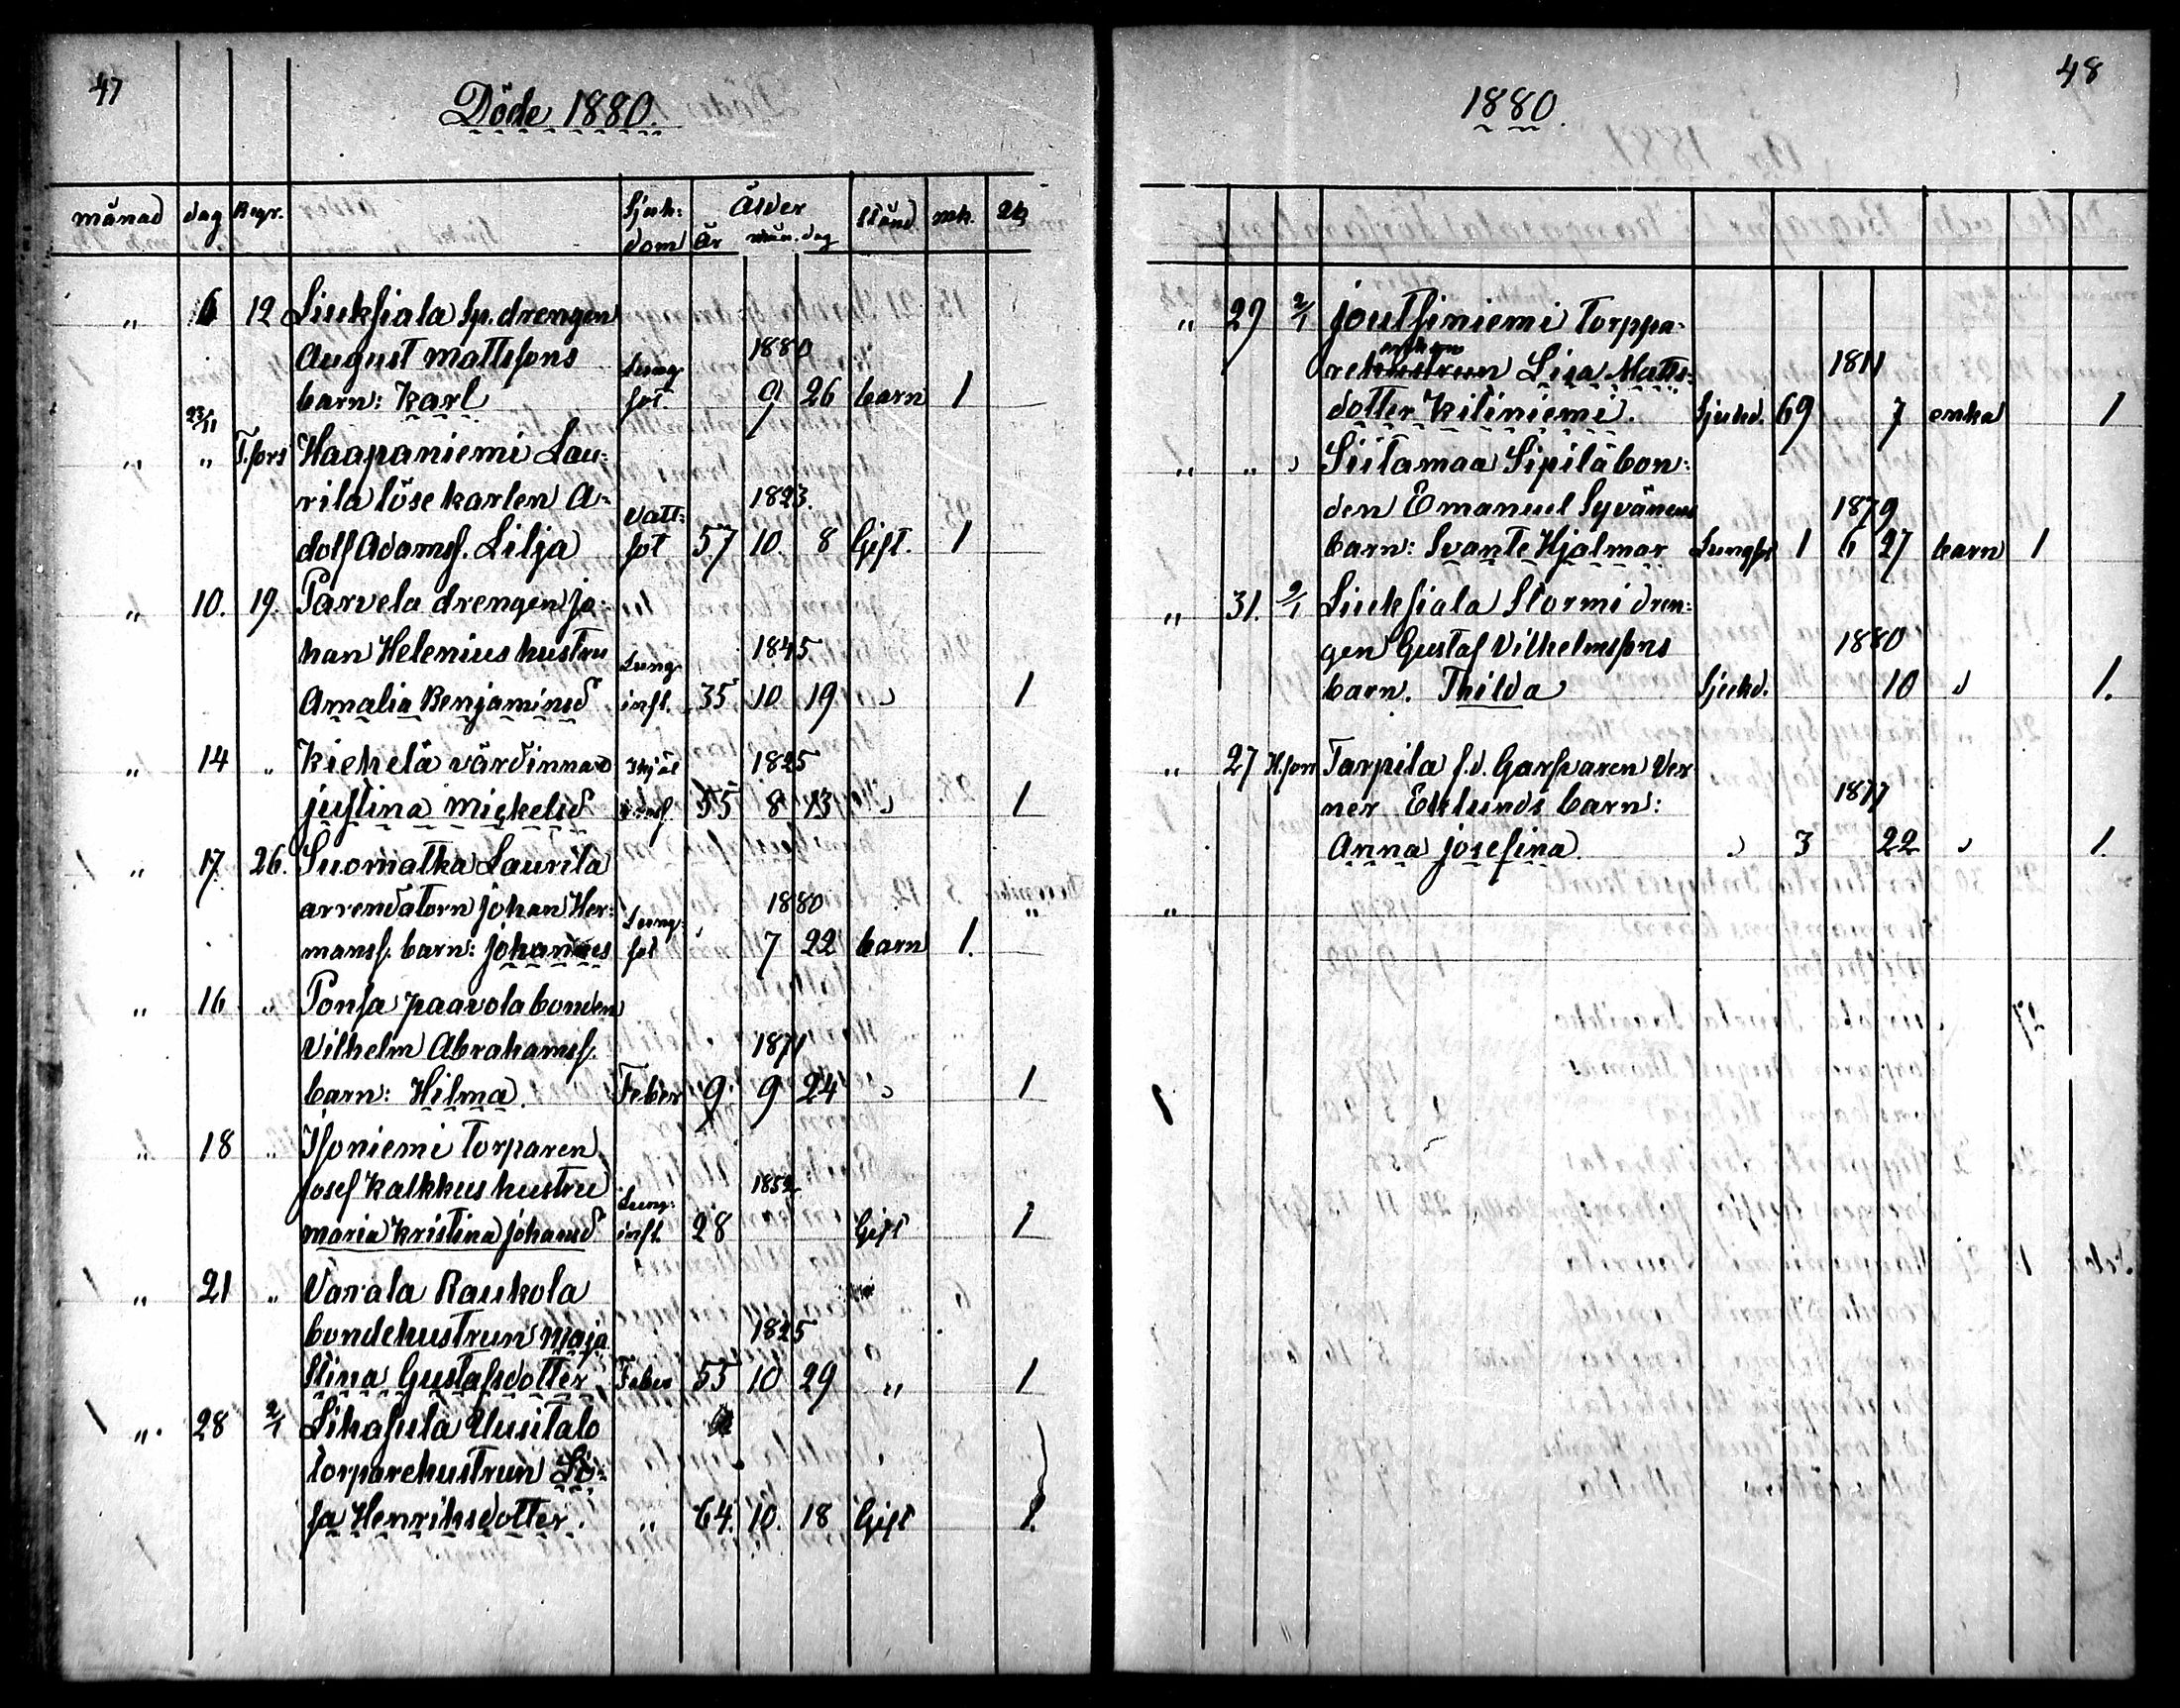 47
Döde 1880.
månad dag Begr. Sjuk- Ålder Stånd mk. qk
dom År mån. dag
" 6 12 Liuksiala Sp. drengen
August Mattssons 1880
barn: Karl Lung sot. 9 26 barn 1
23/11
" " T.fors Haapaniemi Lau-
rila löse karlen A- 1823.
dolf Adamss. Lilja Vatt- sot 57 10. 8 Gift. 1
" 10. 19. Parvela drengen Jo-
han Helenius hustru 1845
Amalia Benjaminsd Lung- infl. 35 10 19 " 1
" 14 " Kiehelä värdinnan 1825
Justina Mickelsd 55 8 13 " 1
" 17. 26. Suomatka Laurila
arrendatorn Johan Her- 1880
manss. barn: Johannes Lung- sot 7 22 barn 1.
" 16 " Ponsa Paavola bonden
Vilhelm Abrahamss. 1871
barn: Hilma. Feber 9. 9 24 " 1
" 18 " Isoniemi Torparen
Josef Kalkkus hustru 1852
Maria Kristina Johansd Lung- infl. 28 Gift 1
" 21 " Varala Raukola
bondehustrun Maja 1825
Stina Gustafsdotter Feber 55 10 29 " 1
" 28 2/1 Lihasula Uusitalo
torparehustrun Lo-
sa Henriksdotter. " 64. 10. 18 Gift 1.
48
1880.
" 29 2/1 Joutsiniemi Torppa-
enkan
rehustrun Lisa Matts- 1811
dotter Kiliniemi. Sjukd. 69 7 enka 1
" " " Siitamaa Sipilä bon-
den Emanuel Syvänens 1879
barn: Svante Hjalmar Lungsot 1 6 27 barn 1
" 31. 9/1 Liuksiala Stormi dren-
gen Gustaf Vilhelmssons 1880
barn. Thilda Sjukd. 10 " 1.
" 27 H.fors Tarpila f.d. Garfvaren Ver
ner Eklunds barn: 1877
Anna Josefina. " 3 22 " 1.
"